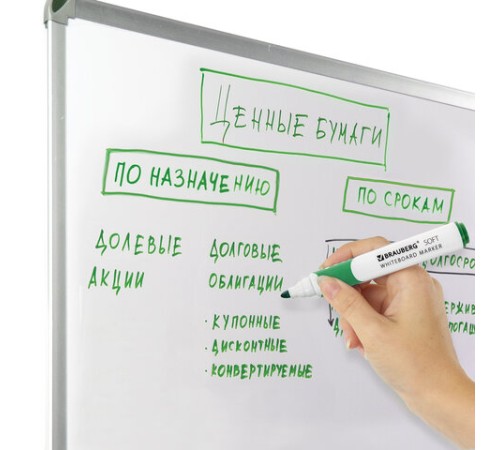 Ценные бумаги
по назначению
по срокам
долевые
акции
долговые
облигации
· купонные
· дисконтные
· конвертируемые
BRAUBERG SOFT
WHITEBOARD MARKER